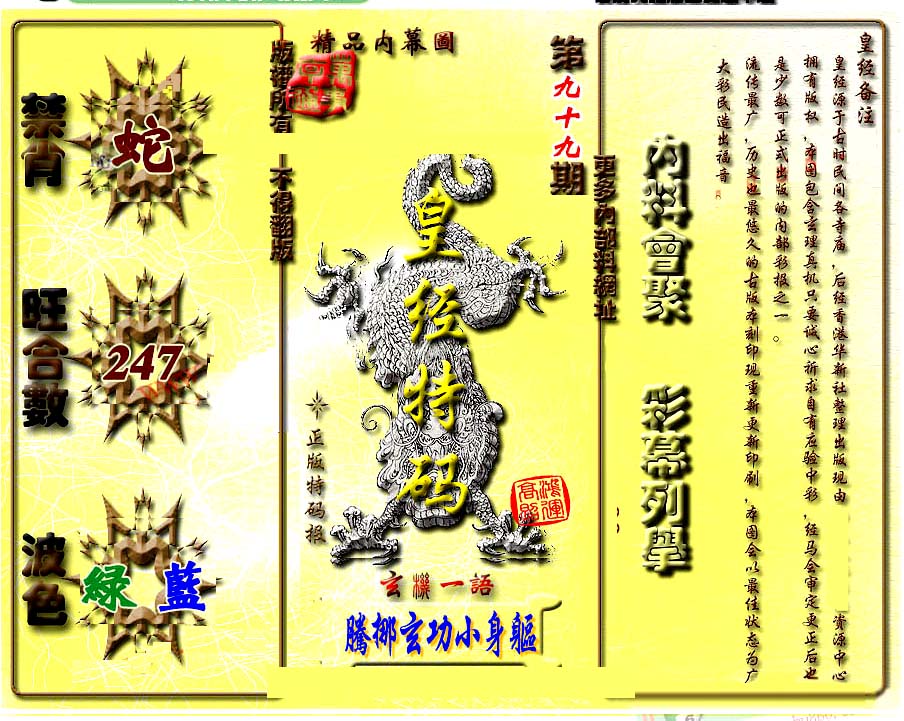 精品內幕圖
版權所有
不得翻版
第九十九期
更多內部料網址
禁肖
蛇
旺合數
247
波色
綠 藍
皇经特码
正版特码报
鴻運高照
玄機一語
騰挪玄功小身軀
內料會聚
彩幕列學
皇经备注
皇经源于古时民间各寺庙，后经香港华新社整理出版现由 资源中心
拥有版权，本图包含玄理真机只要诚心祈求自有应验中彩，经马会审定更正后也
是少数可正式出版的内部彩报之一。
流传最广，历史也最悠久的古版本刻印现重新更新印刷，本图会以最佳状态为广
大彩民造出福音